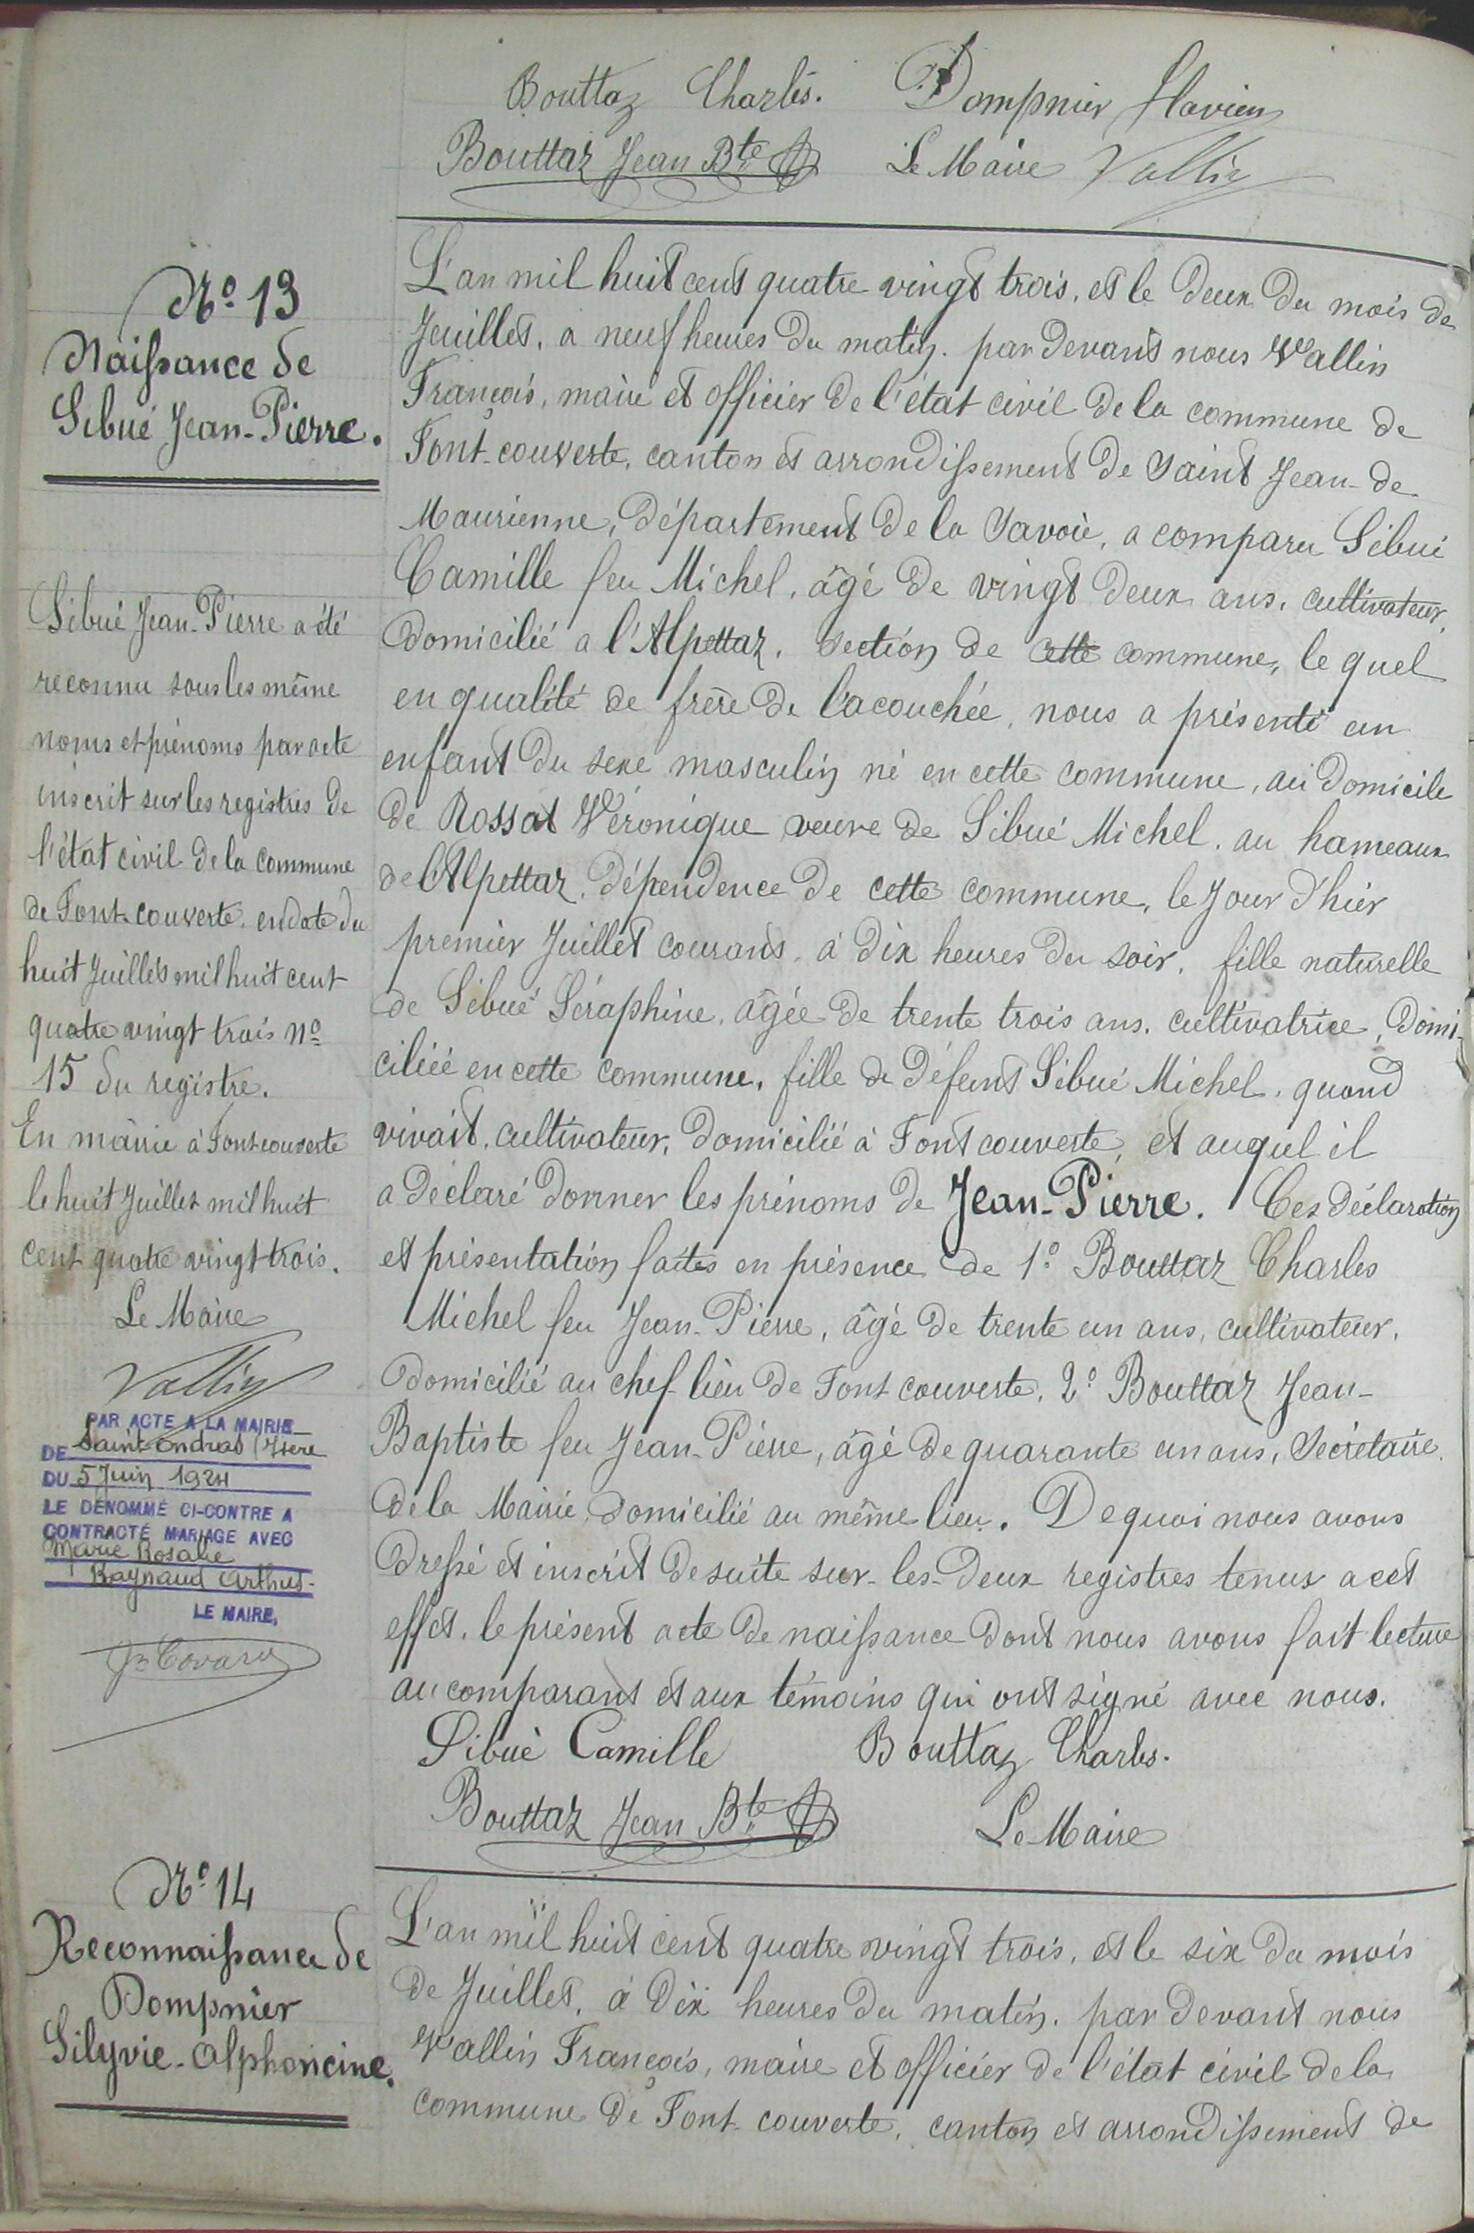 Bouttaz Charles. Dompnier Flavien
Bouttaz Jean Bte Le Maire Vallin
No. 13
Naissance de
Sibué Jean-Pierre.
L'an mil huit cent quatre vingt trois, et le deux du mois de
Juillet, a neuf heures du matin. par devant nous Vallin
François, maire et officier de l'état civil de la commune de
Font-couverte, canton et arrondissement de Saint Jean-de
Maurienne, département de la Savoie, a comparu Sibué
Camille feu Michel, âgé de vingt deux ans, cultivateur,
domicilié a l'Alpettaz, section de cette commune, le quel
en qualité de frère de l'acouchée, nous a présenté un
enfant du sexe masculin né en cette commune, au domicile
de Rossat Véronique veuve de Sibué Michel, au hameaux
de l'Alpettaz, dépendence de cette commune, le jour d'hier
premier Juillet courant, à dix heures du soir, fille naturelle
de Sibué Séraphine, âgée de trente trois ans, cultivatrice, domi-
ciliée en cette commune, fille de défunt Sibué Michel, quand
vivait, cultivateur, domicilié à Font couverte, et auquel il
a déclaré donner les prénoms de Jean-Pierre. Ces déclaration
et présentation faites en présence de 1o. Bouttaz Charles
Michel feu Jean-Pierre, âgé de trente un ans, cultivateur,
domicilié au chef-lieu de Font couverte, 2o. Bouttaz Jean-
Baptiste feu Jean-Pierre, âgé de quarante un ans, Secrétaire
de la Mairie, domicilié au même lieu. De quoi nous avons
dressé et inscrit de suite sur-les-deux registres tenus a cet
effet, le présent acte de naissance dont nous avons fait lecture
au comparant et aux témoins qui ont signé avec nous.
Sibué Camille Bouttaz Charles.
Bouttaz Jean Bte Le Maire
Sibué Jean-Pierre a été
reconnu sous les même
noms et prénoms par acte
inscrit sur les registres de
l'état civil de la commune
de Font-couverte, en date du
huit Juillet mil huit cent
quatre vingt trois No.
15 du registre.
En mairie à Fontcouverte
le huit Juillet mil huit
cent quatre vingt trois.
Le Maire
Vallin
PAR ACTE A LA MAIRIE
DE Saint Ondras (Isère
DU 5 Juin 1924
LE DÉNOMMÉ CI-CONTRE A
CONTRACTÉ MARIAGE AVEC
Marie Rosalie
Raynaud Arthus-
LE MAIRE,
No. 14
Reconnaissance de
Dompnier
Silyvie-Alphoncine.
L'an mil huit cent quatre vingt trois, et le six du mois
de Juillet, à dix heures du matin, par devant nous
Vallin François, maire et officier de l'état civil de la
commune de Font-couverte, canton et arrondissement de